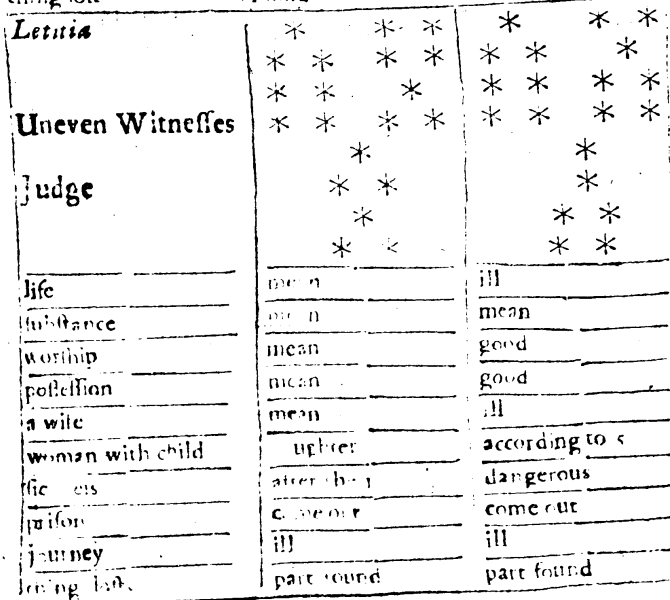 Letitia
Uneven Witneſſes
Judge
life mean ill
ſubſtance mean mean
worſhip mean good
poſſeſſion mean good
a wife mean ill
woman with child according to
dangerous
priſon come out come out
journey ill ill
thing loſt part found part found